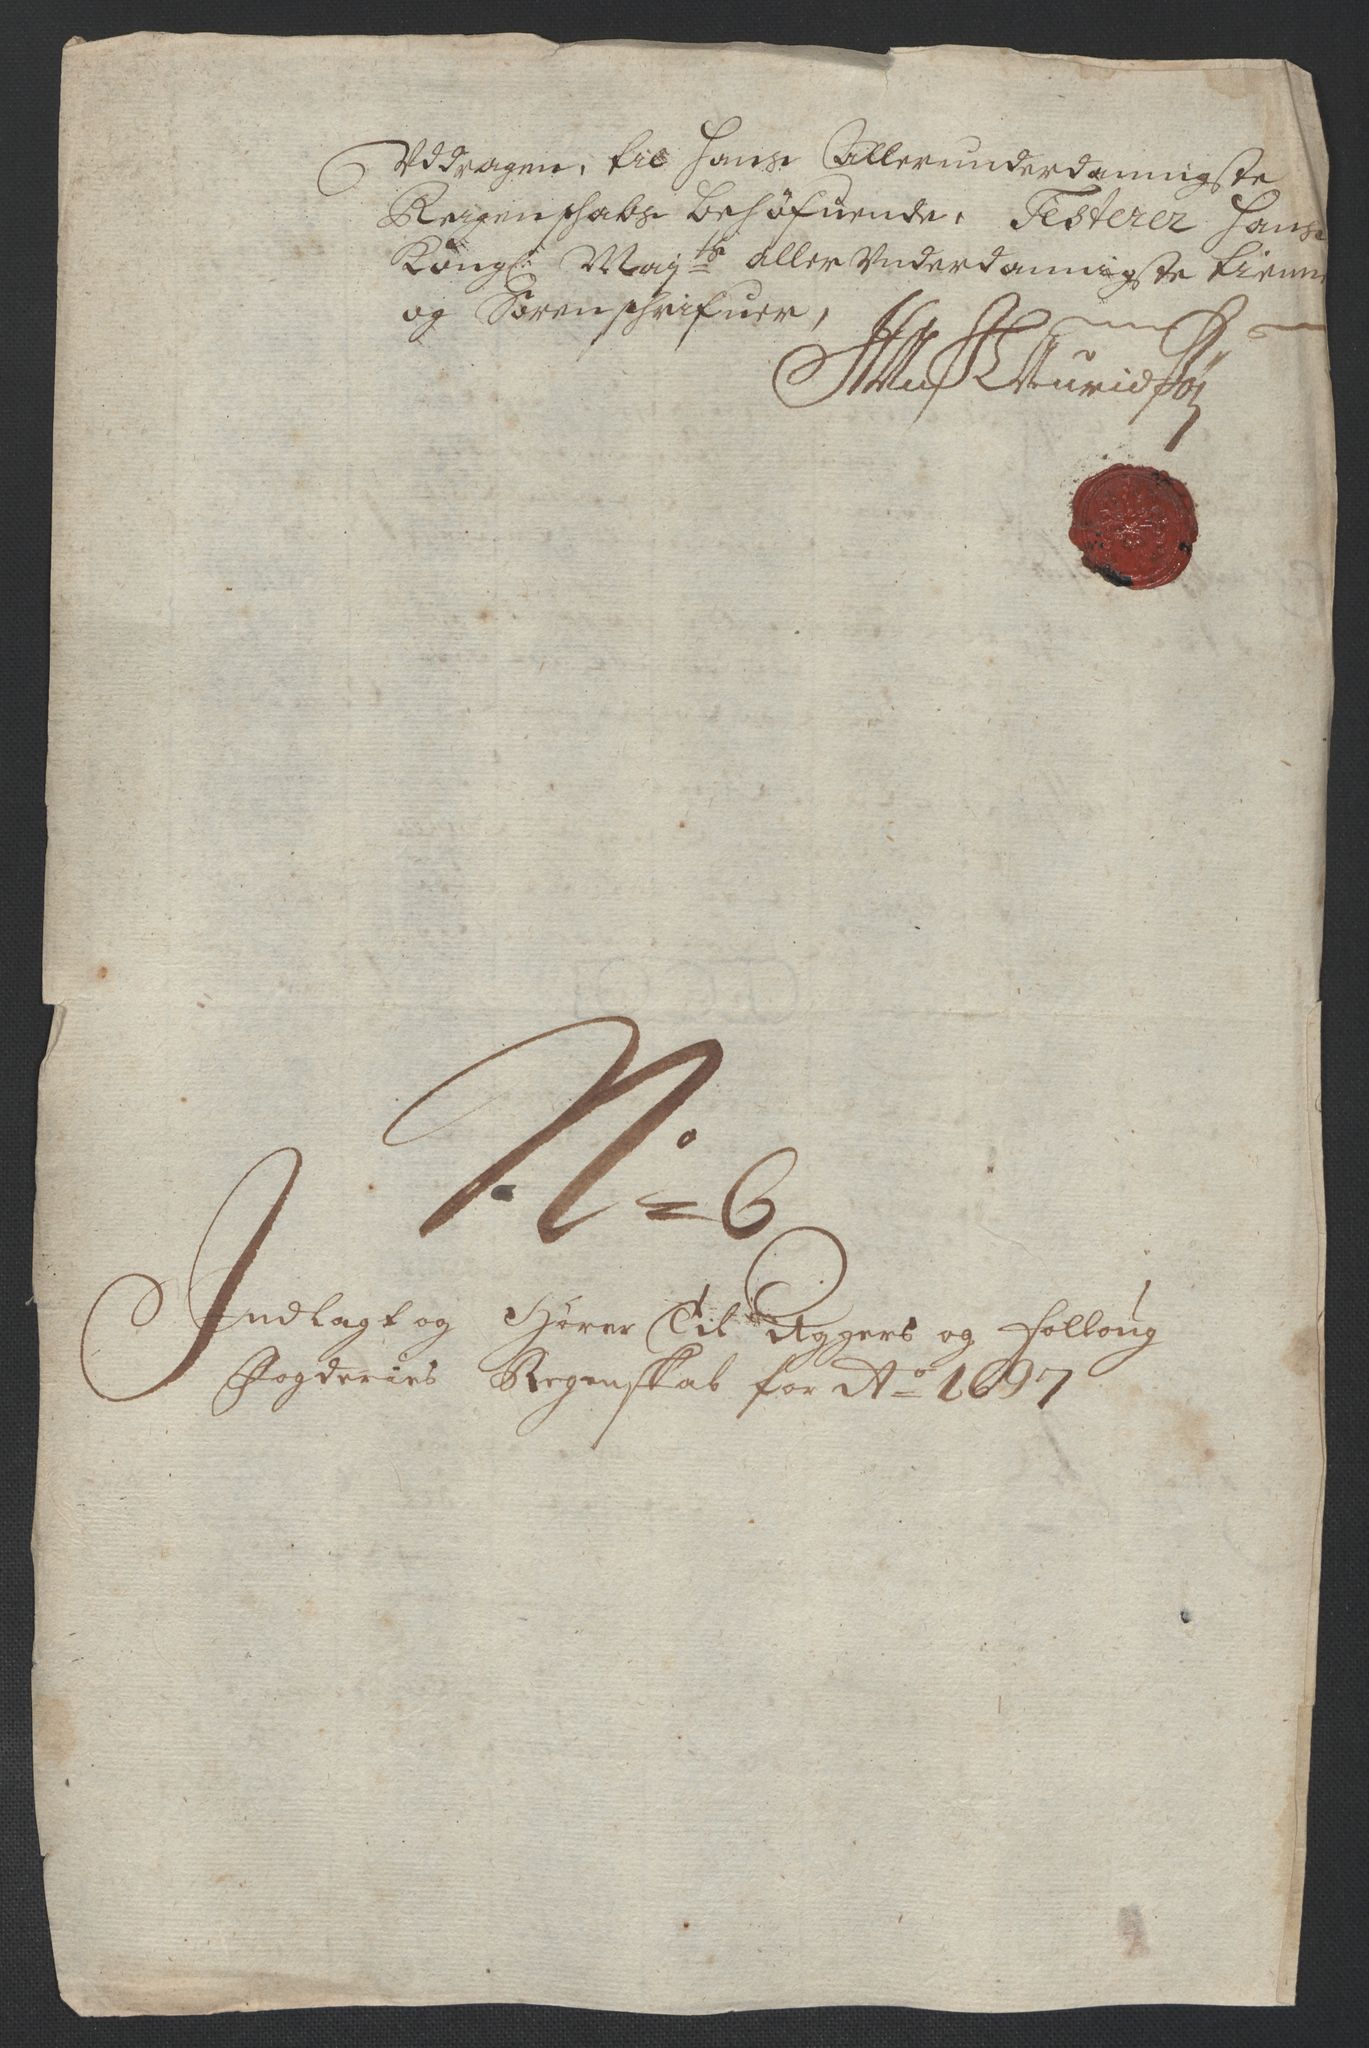 Vddragen, til hans Allerunderdannigste
Reigenschabs behöfuende, Testerer hans
Kongl: Mayts aller Vnderdannigste tienner
og Sorenschrifuer,
Lauridsøn
No 6
Indlagt og hører Til Aggers og Folloug
Fogderies Regenskab for Ao 1697